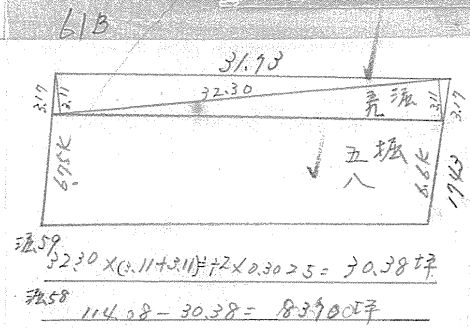 61B
31.93
32.30
3.17
3.11
3.11
3.17
67.5K
6.6K
1743
五堀
八
59
32.30×(3.11+3.11)÷2×0.3025=30.38坪
58
114.08-30.38=83.700坪